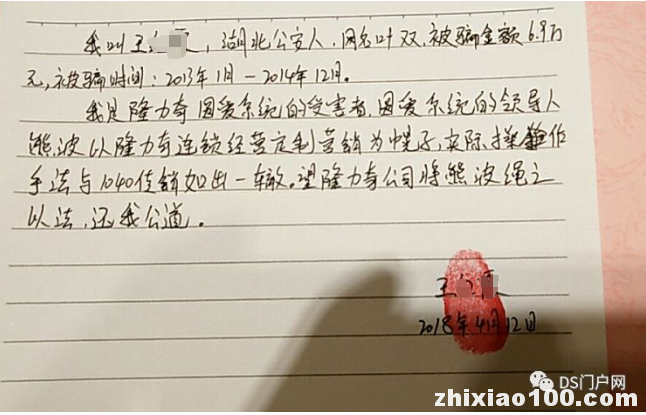 我叫王，湖北公安人，网名叶双，被骗金额6.9万
元，被骗时间：2013年1月－2014年12月。
我是隆力奇因爱系统的受害者，因爱系统的领导人
熊波以隆力奇连锁经营定制营销为幌子，实际操作
手法与1040传销如出一辙。望隆力奇公司将熊波绳之
以法，还我公道。
王
2018年4月12日
DS门户网
zhixiao100.com